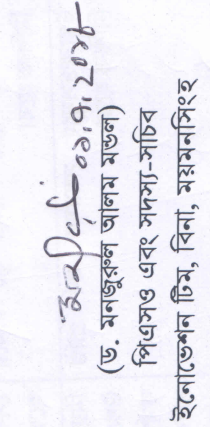 ০১.৭.২০১৮
(ড. মনজুরুল আলম মন্ডল)
পিএসও এবং সদস্য-সচিব
ইনোভেশন টিম, বিনা, ময়মনসিংহ